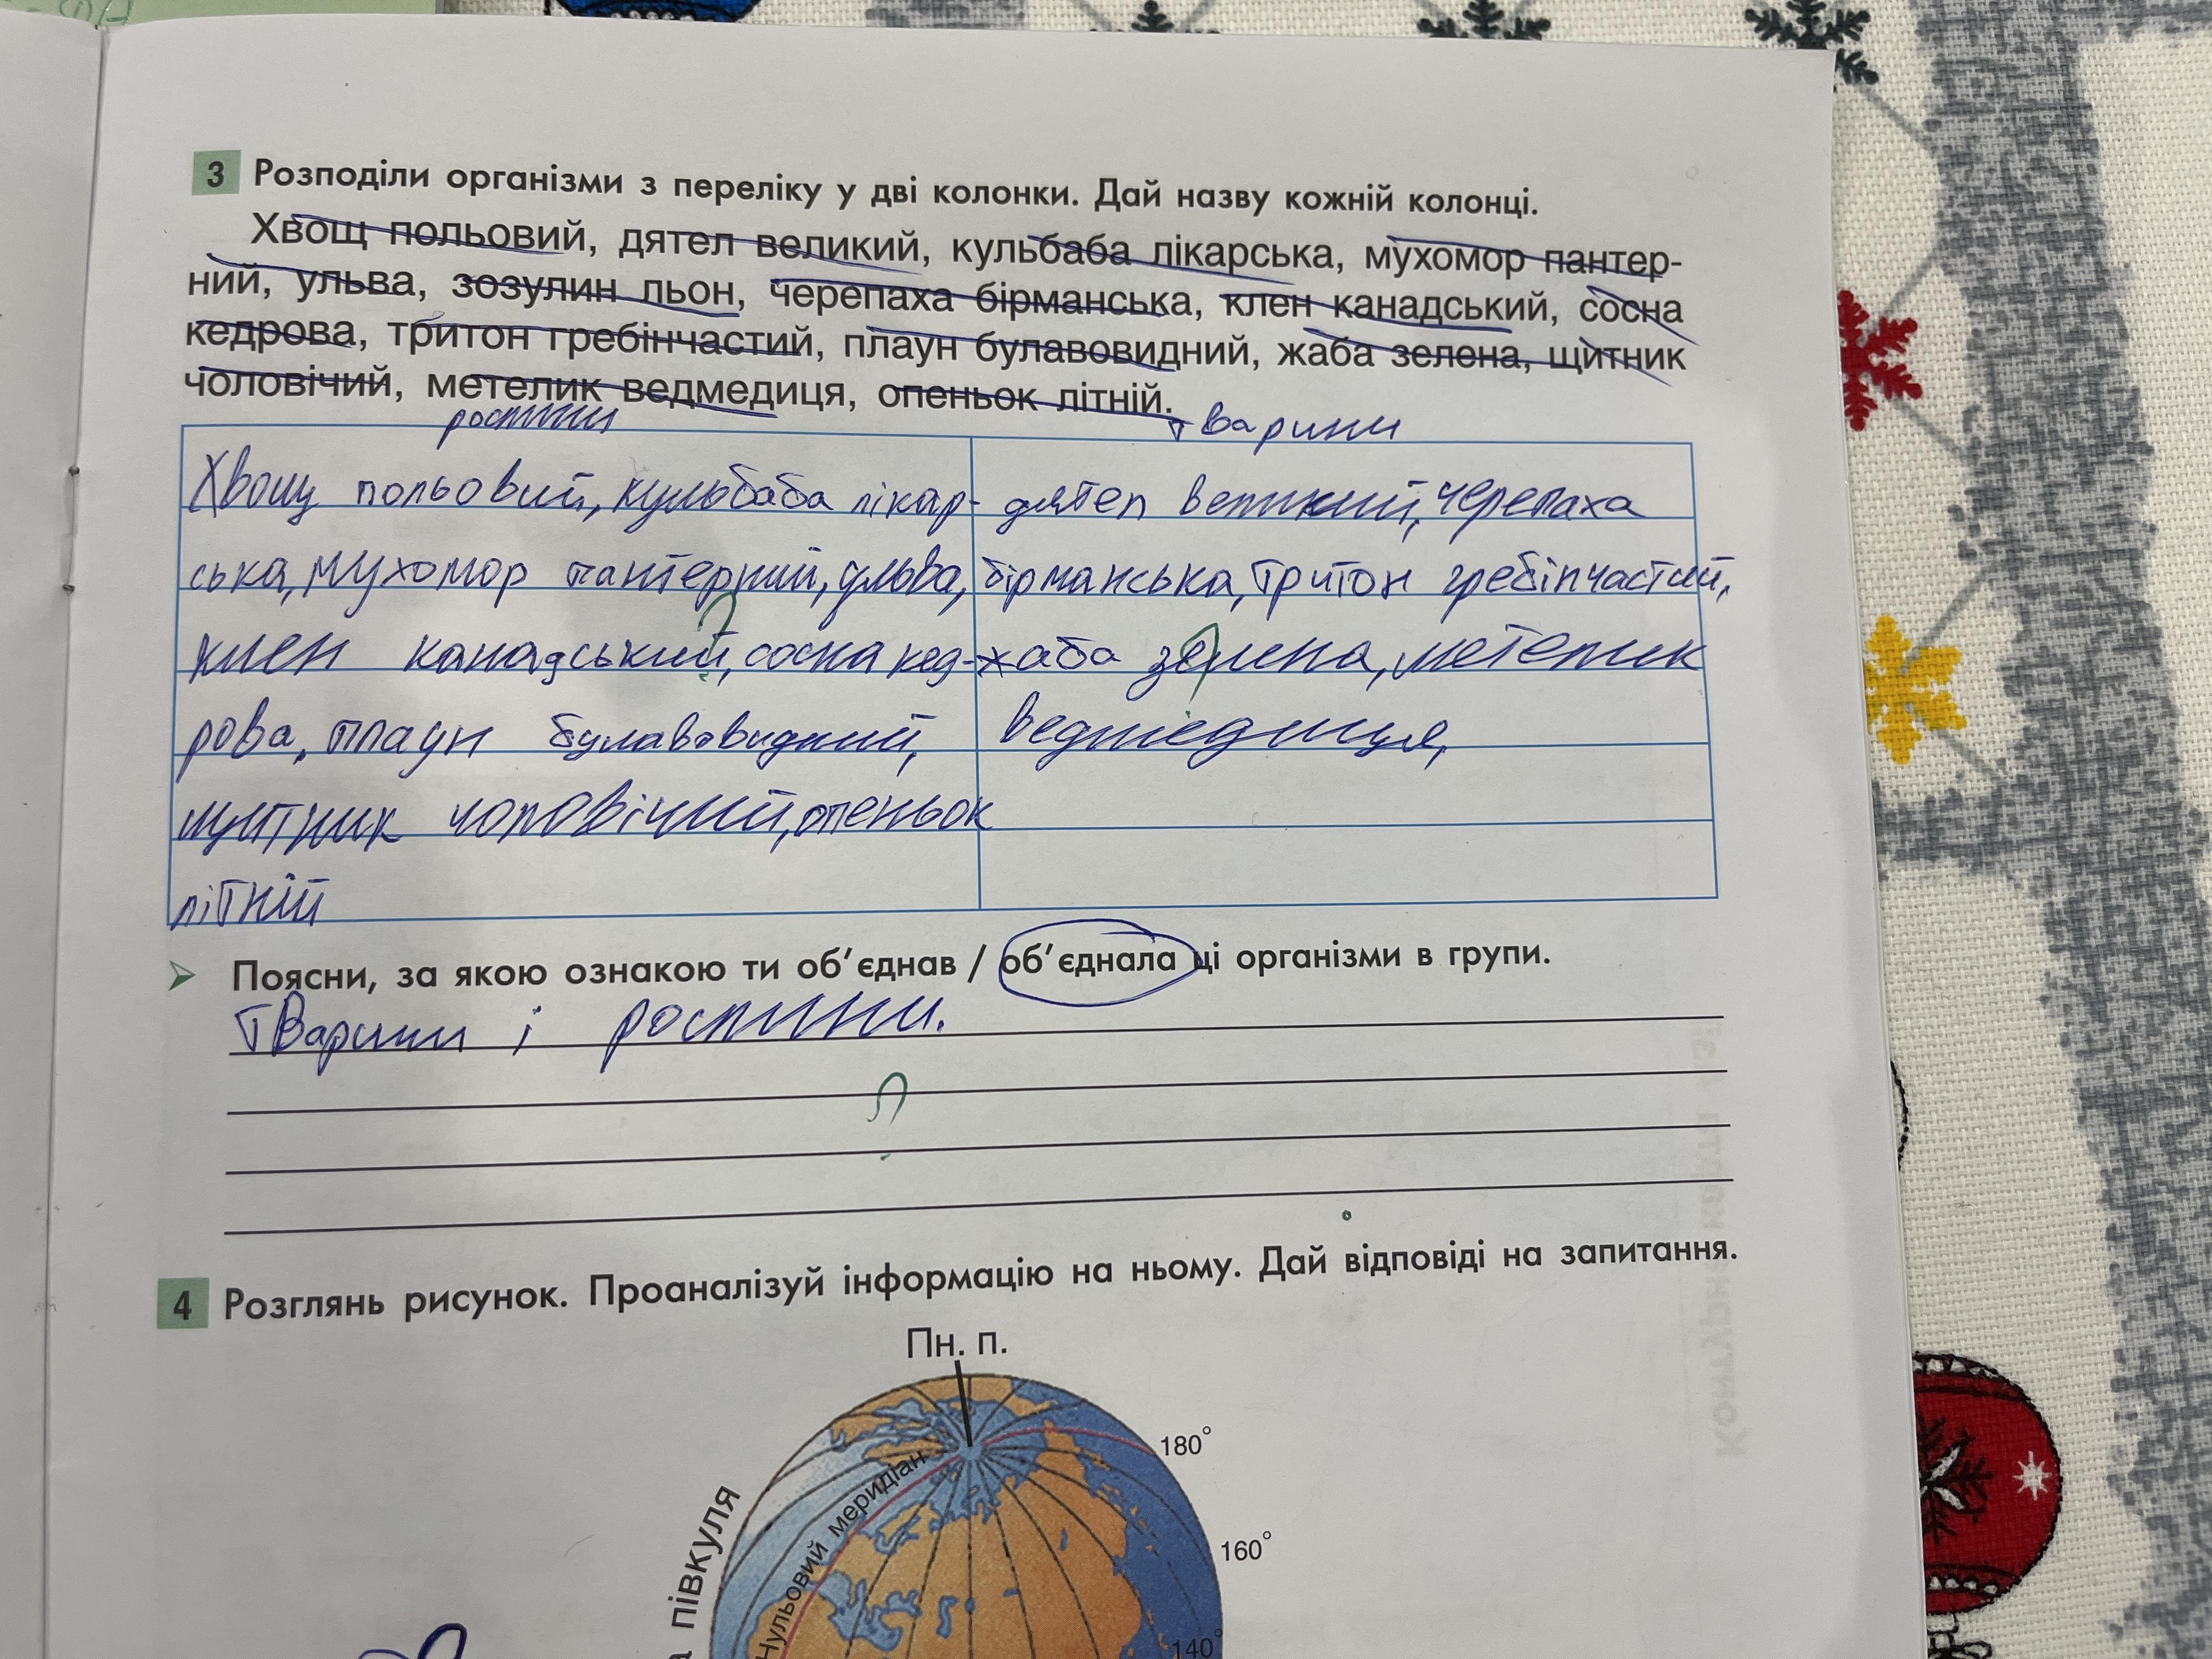 3 Розподіли організми з переліку у дві колонки. Дай назву кожній колонці.
Хвощ польовий, дятел великий, кульбаба лікарська, мухомор пантер-
ний, ульва, зозулин льон, черепаха бірманська, клен канадський, сосна
кедрова, тритон гребінчастий, плаун булавовидний, жаба зелена, щитник
чоловічий, метелик ведмедиця, опеньок літній.
рослини тварини
Хвощ польовий, кульбаба лікар- дятел великий, черепаха
ська, мухомор пантерний, ульва, бірманська, тритон гребінчастий,
клен канадський, сосна кед- жаба зелена, метелик
рова, плаун булавовидний, ведмедиця,
щитник чоловічий, опеньок
літній
? ?
➤ Поясни, за якою ознакою ти об'єднав / об'єднала ці організми в групи.
Тварини і рослини.
?
4 Розглянь рисунок. Проаналізуй інформацію на ньому. Дай відповіді на запитання.
Пн. п.
180°
160°
140°
Нульовий меридіан
а півкуля